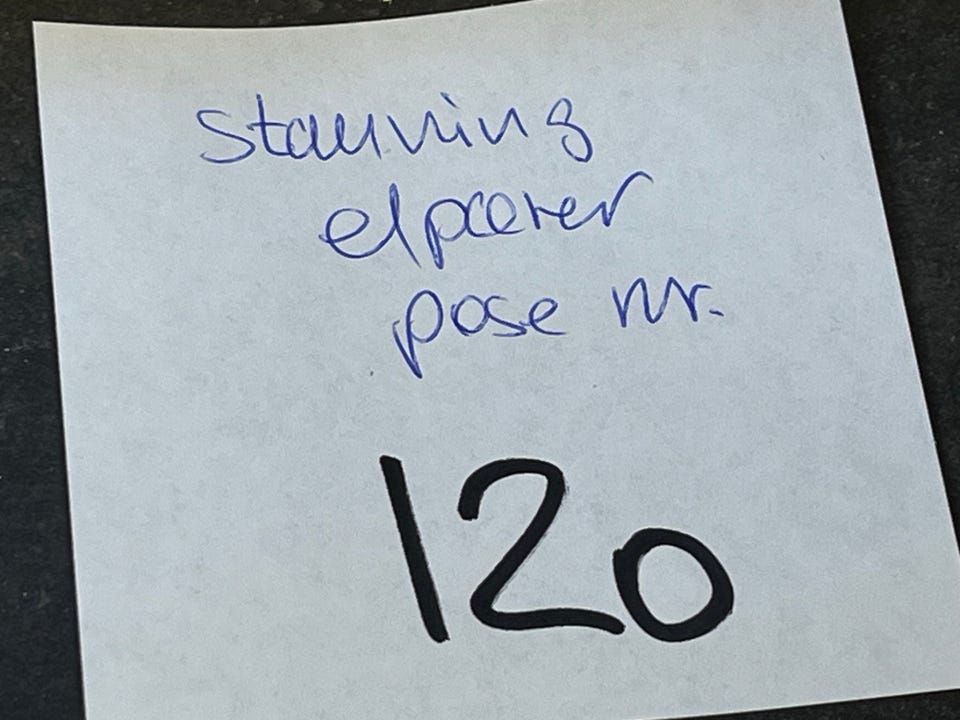 stauning
elpærer
pose nr.
120